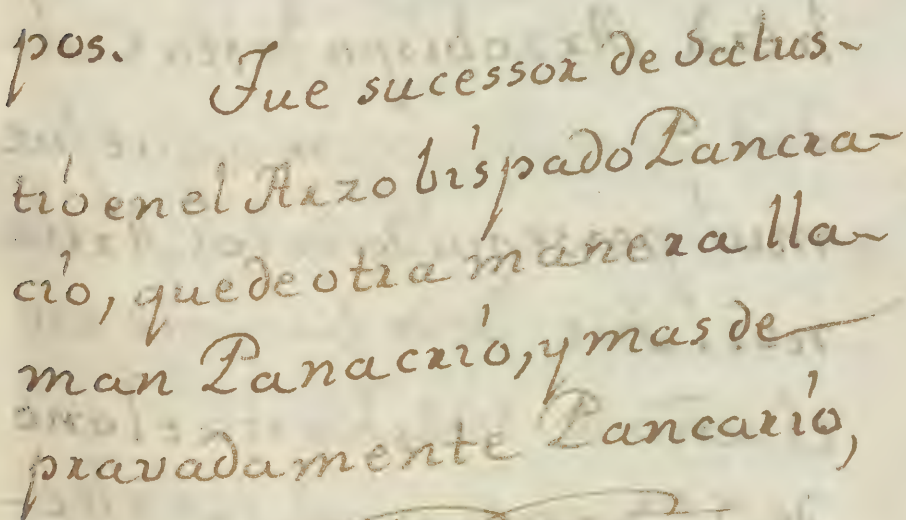 pos. Fue sucessor de Salus-
tio en el Arzobispado Pancra-
cio, que de otra manera lla-
man Panacrio, y mas de-
pravadamente Pancario,